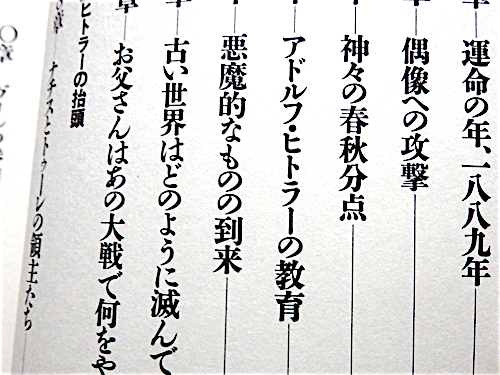 運命の年、一八八九年
偶像への攻撃
神々の春秋分点
アドルフ・ヒトラーの教育
悪魔的なものの到来
古い世界はどのように滅んで
お父さんはあの大戦で何をや
ヒトラーの抬頭
ナチスとトゥーレの領主たち